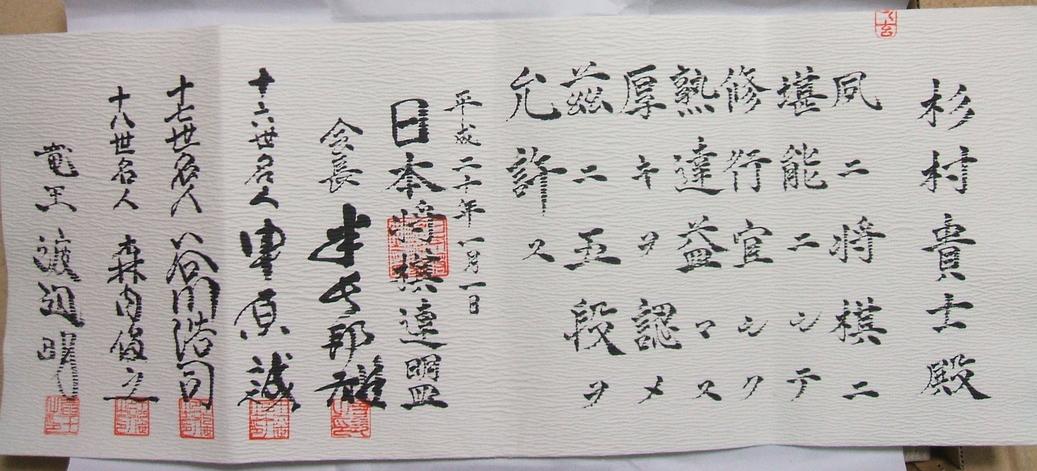 杉村貴士殿
夙ニ将棋ニ
堪能ニシテ
修行宜シク
熟達益マス
厚キヲ認メ
茲ニ五段ヲ
允許ス
平成二十年一月一日
日本将棋連盟
会長 米長邦雄
十六世名人 中原誠
十七世名人 谷川浩司
十八世名人 森内俊之
竜王 渡辺明